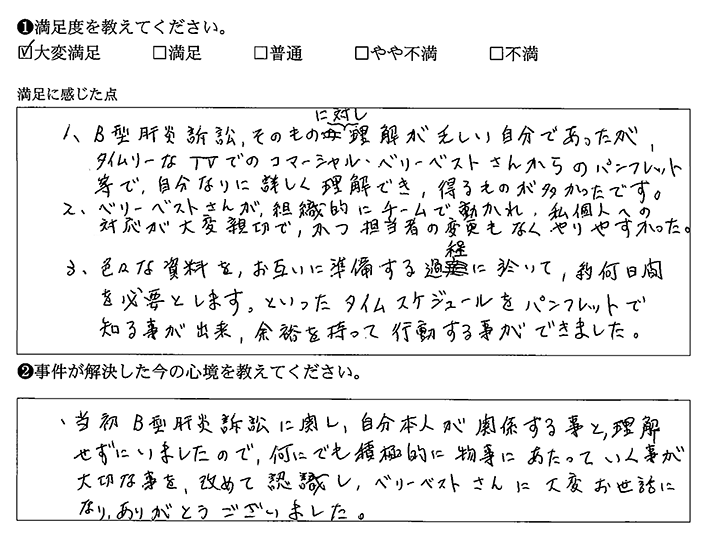 ❶満足度を教えてください。
☑大変満足 □満足 □普通 □やや不満 □不満
満足に感じた点
に対し
1、B型肝炎訴訟、そのもの理解が乏しい自分であったが、
タイムリーなTVでのコマーシャル・ベリーベストさんからのパンフレット
等で、自分なりに詳しく理解でき、得るものが多かったです。
2、ベリーベストさんが、組織的にチームで動かれ、私個人への
対応が大変親切で、かつ担当者の変更もなくやりやすかった。
経
3、色々な資料を、お互いに準備する過に於いて、約何日間
を必要とします。といったタイムスケジュールをパンフレットで
知る事が出来、余裕を持って行動する事ができました。
❷事件が解決した今の心境を教えてください。
、当初B型肝炎訴訟に関し、自分本人が関係する事と、理解
せずにいましたので、何にでも積極的に物事にあたっていく事が
大切な事を、改めて認識し、ベリーベストさんに大変お世話に
なり、ありがとうございました。